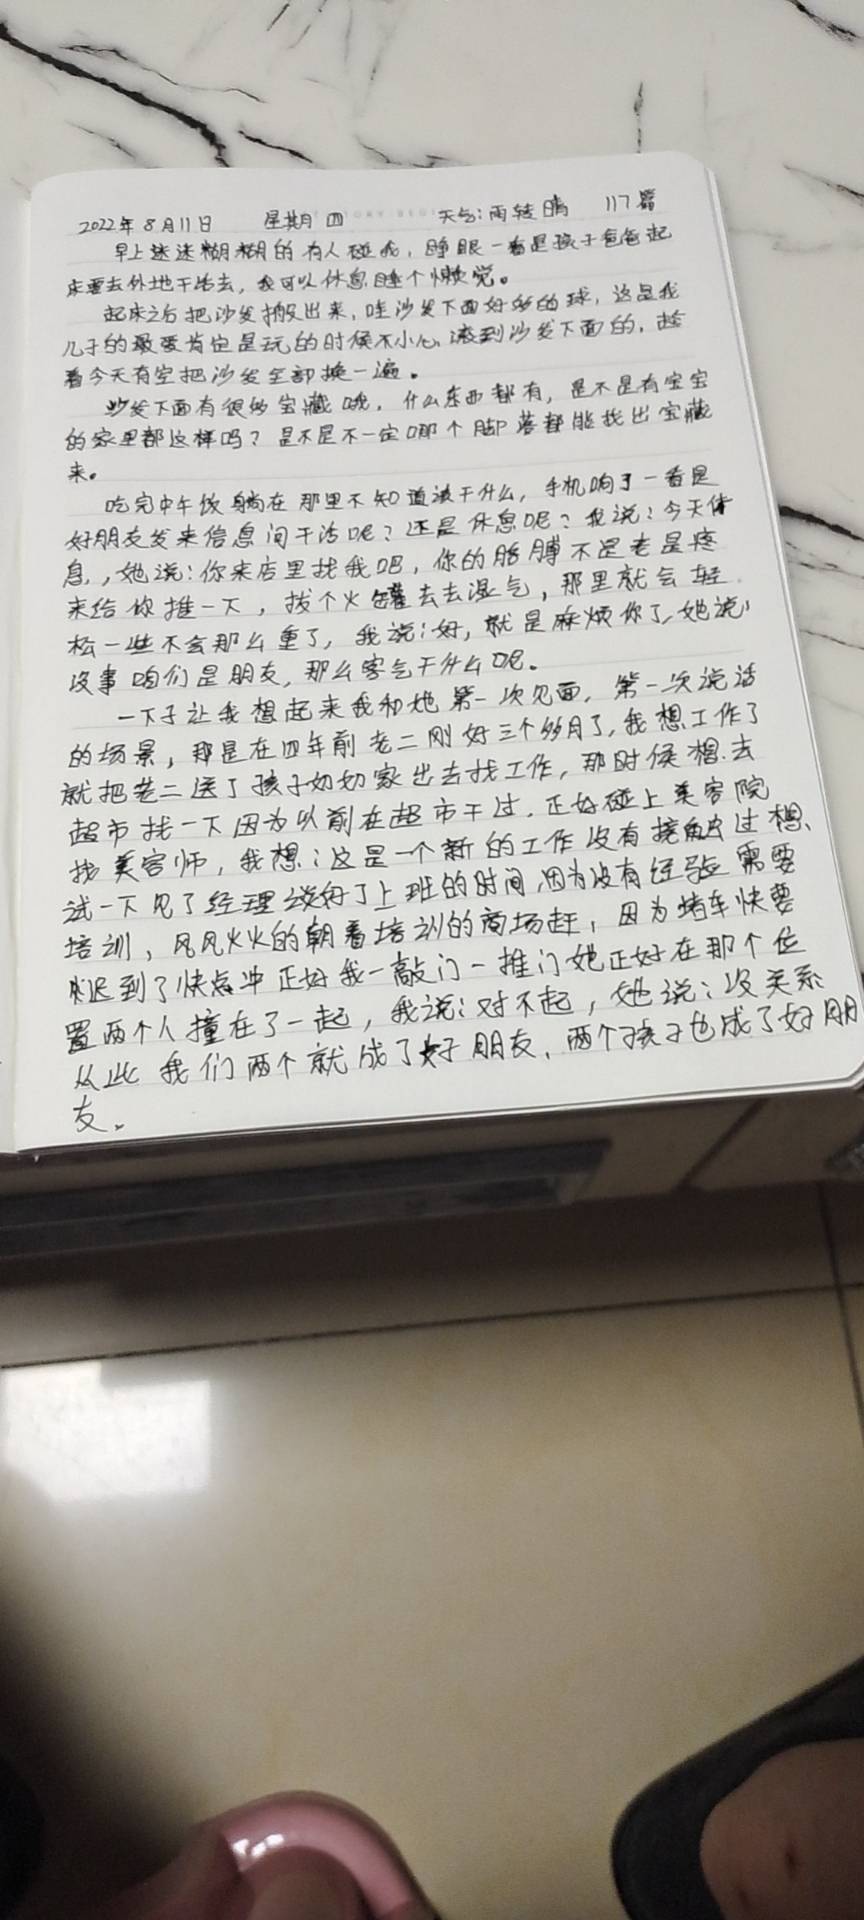 2022年8月11日 星期四 天气:雨转晴 117篇
早上迷迷糊糊的有人碰我,睁眼一看是孩子爸爸起
床要去外地干活去,我可以休息睡个懒觉。
起床之后把沙发搬出来,哇沙发下面好多的球,这是我
儿子的最爱肯定是玩的时候不小心滚到沙发下面的,趁
着今天有空把沙发全部换一遍。
沙发下面有很多宝藏哦,什么东西都有,是不是有宝宝
的家里都这样吗?是不是不一定哪个脚落都能找出宝藏
来。
吃完中午饭躺在那里不知道该干什么,手机响了一看是
好朋友发来信息问干活呢?还是休息呢?我说:今天休
息,她说:你来店里找我吧,你的胳膊不是老是疼
来给你推一下,拔个火罐去去湿气,那里就会轻
松一些不会那么重了,我说:好,就是麻烦你了,她说:
没事咱们是朋友,那么客气干什么呢。
一下子让我想起来我和她第一次见面,第一次说话
的场景,那是在四年前老二刚好三个多月了,我想工作了
就把老二送了孩子奶奶家出去找工作,那时候想去
超市找一下因为以前在超市干过,正好碰上美容院
找美容师,我想:这是一个新的工作没有接触过想
试一下见了经理谈好了上班的时间,因为没有经验需要
培训,风风火火的朝着培训的商场赶,因为堵车快要
迟到了快点冲正好我一敲门一推门她正好在那个位
置两个人撞在了一起,我说:对不起,她说:没关系
从此我们两个就成了好朋友,两个孩子也成了好朋
友。